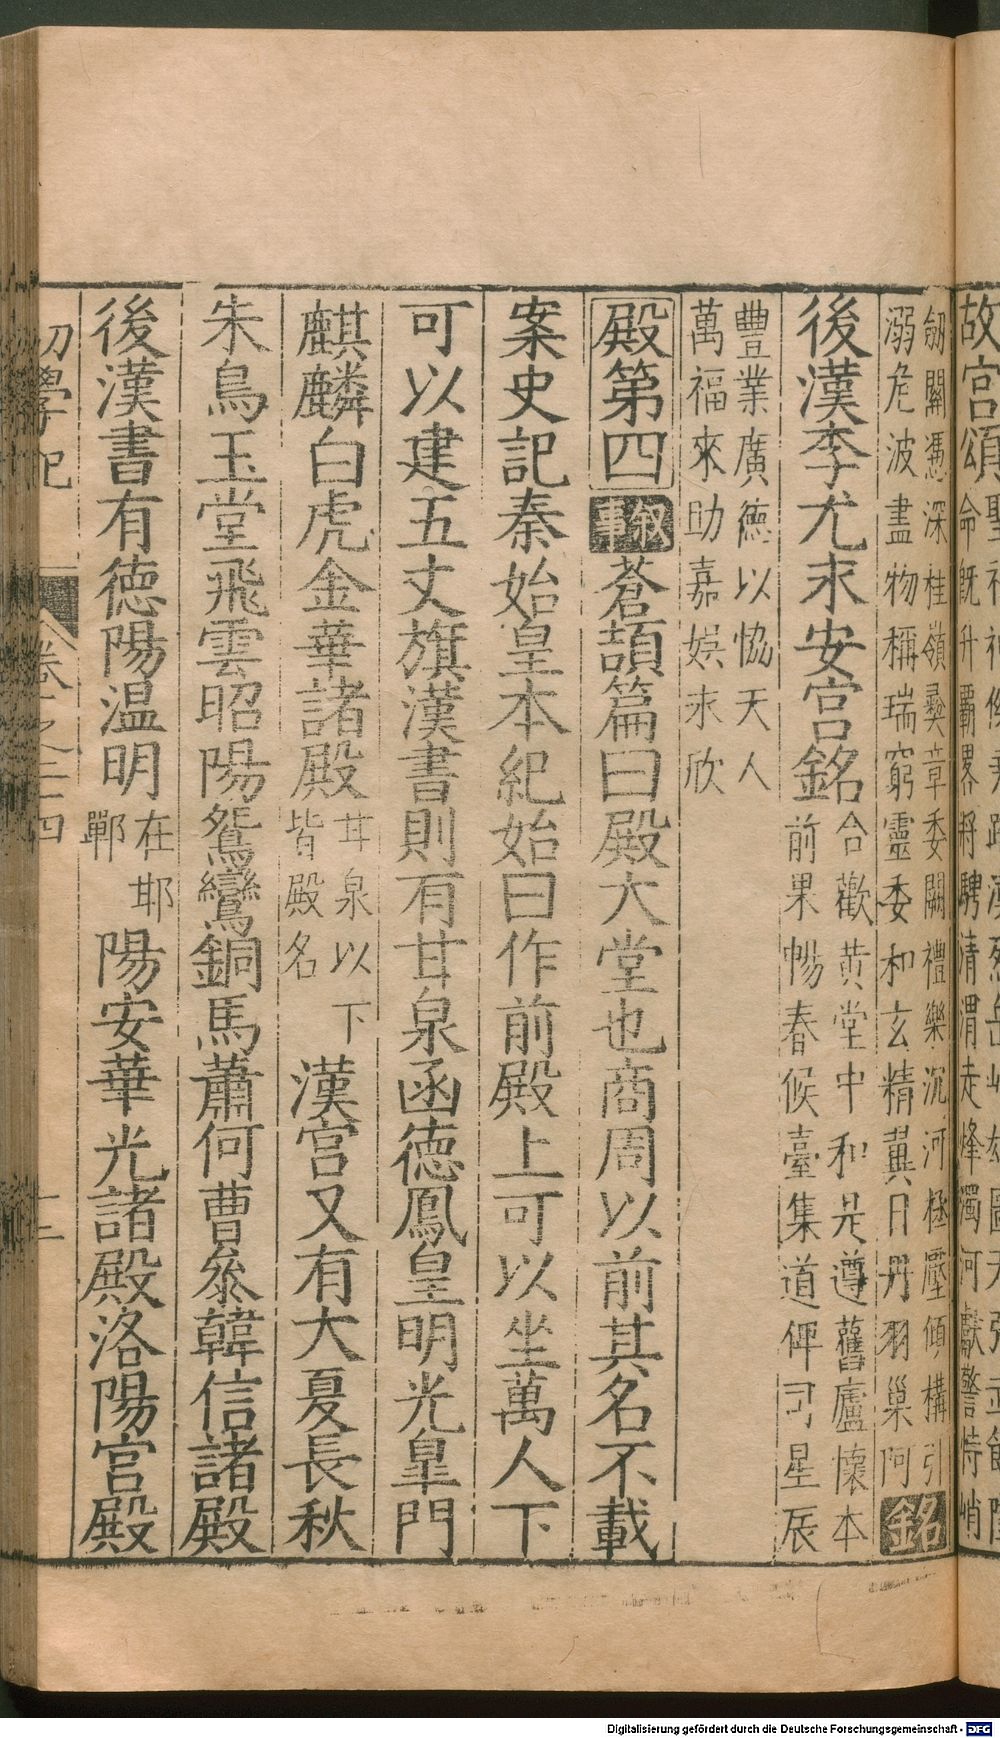 故宮頌
劔關憑深桂嶺彜章委闕禮樂沉河極壓傾構引
溺危波盡物稱瑞窮靈委和玄精冀日丹羽巢阿 銘
後漢李尤永安宮銘
合歡黃堂中和是遵舊廬懷本
前果暢春候臺集道俾司星辰
豐業廣德以恊天人
萬福來助嘉娛永欣
殿第四 叙事 蒼頡篇曰殿大堂也商周以前其名不載
案史記秦始皇本紀始曰作前殿上可以坐萬人下
可以建五丈旗漢書則有甘泉函德鳳皇明光皐門
麒麟白虎金華諸殿
甘泉以下
皆殿名
漢宮又有大夏長秋
朱鳥玉堂飛雲昭陽鴛鸞銅馬蕭何曹叅韓信諸殿
後漢書有德陽温明
在耶
鄲
陽安華光諸殿洛陽宮殿
初學記
卷之二十四
十二
Digitalisierung gefördert durch die Deutsche Forschungsgemeinschaft - DFG